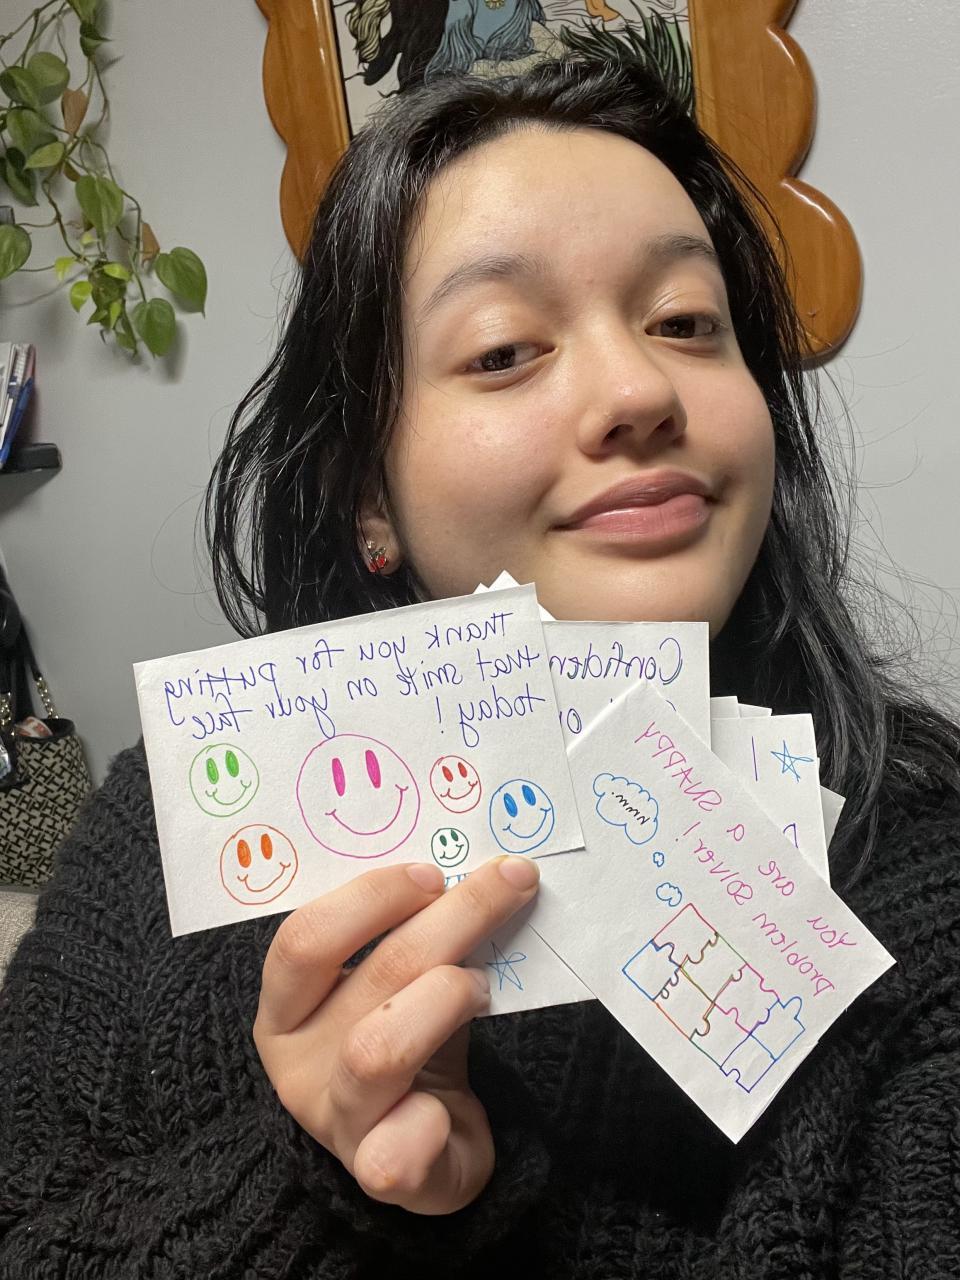 Thank you for putting
that smile on your face
today!
Confiden
You are a SNAPPY
problem solver!